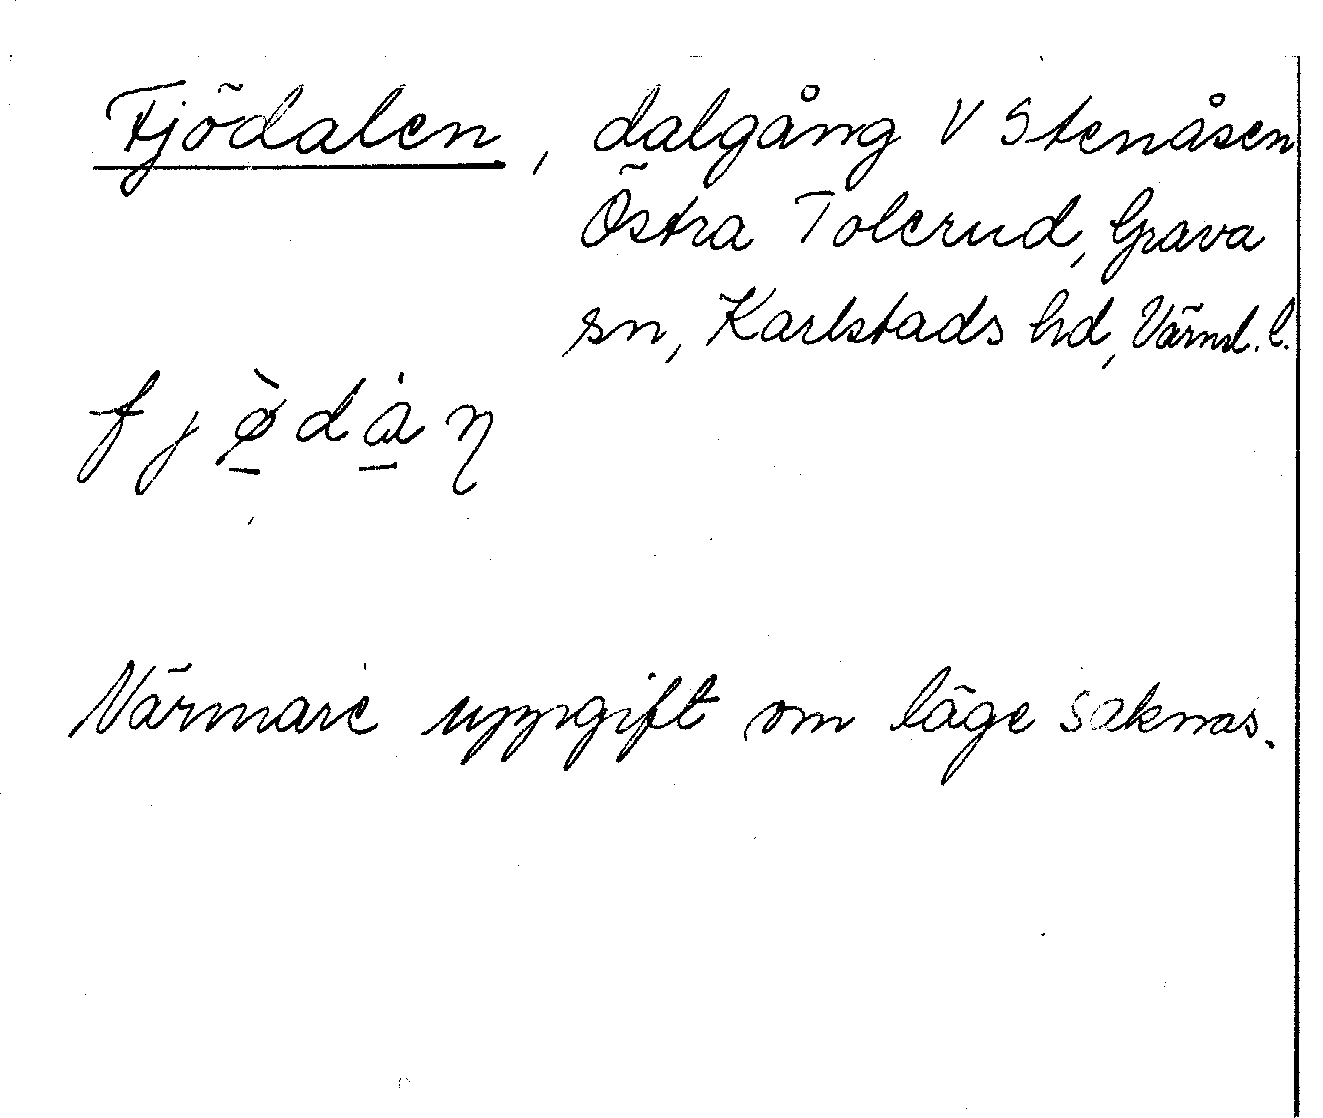 Fjödalen, dalgång V Stenåsen
Östra Tolerud, Grava
sn, Karlstads hd, Värml. l.
fjø̱̀dȧ̱ŋ
Närmare uppgift om läge saknas.